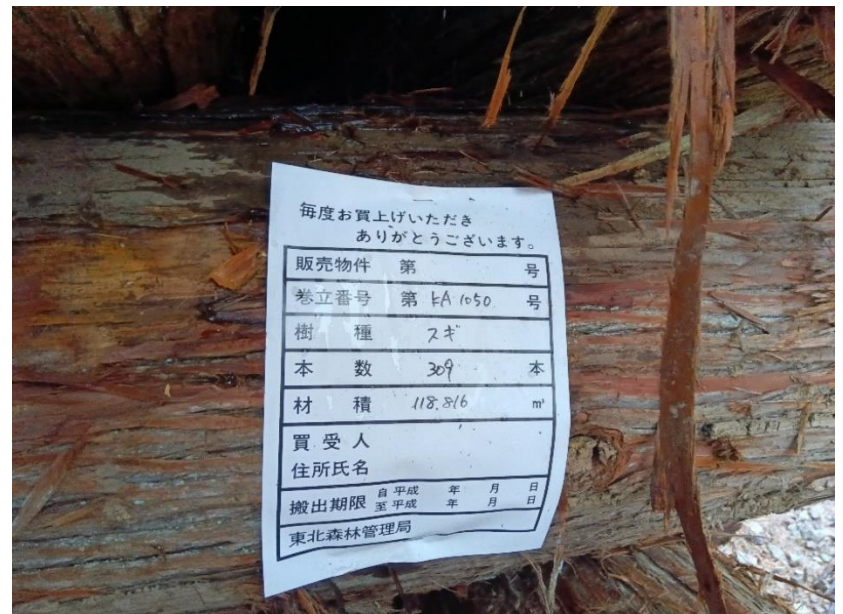 毎度お買上げいただき
ありがとうございます。
販売物件 第 号
巻立番号 第 KA 1050 号
樹種 スギ
本数 309 本
材積 118.816 m³
買受人
住所氏名
搬出期限 自 平成 年 月 日
至 平成 年 月 日
東北森林管理局